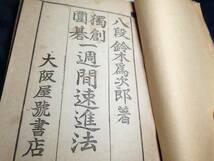 八段 鈴木爲次郎著
獨創
圍碁
一週間速進法
大阪屋號書店